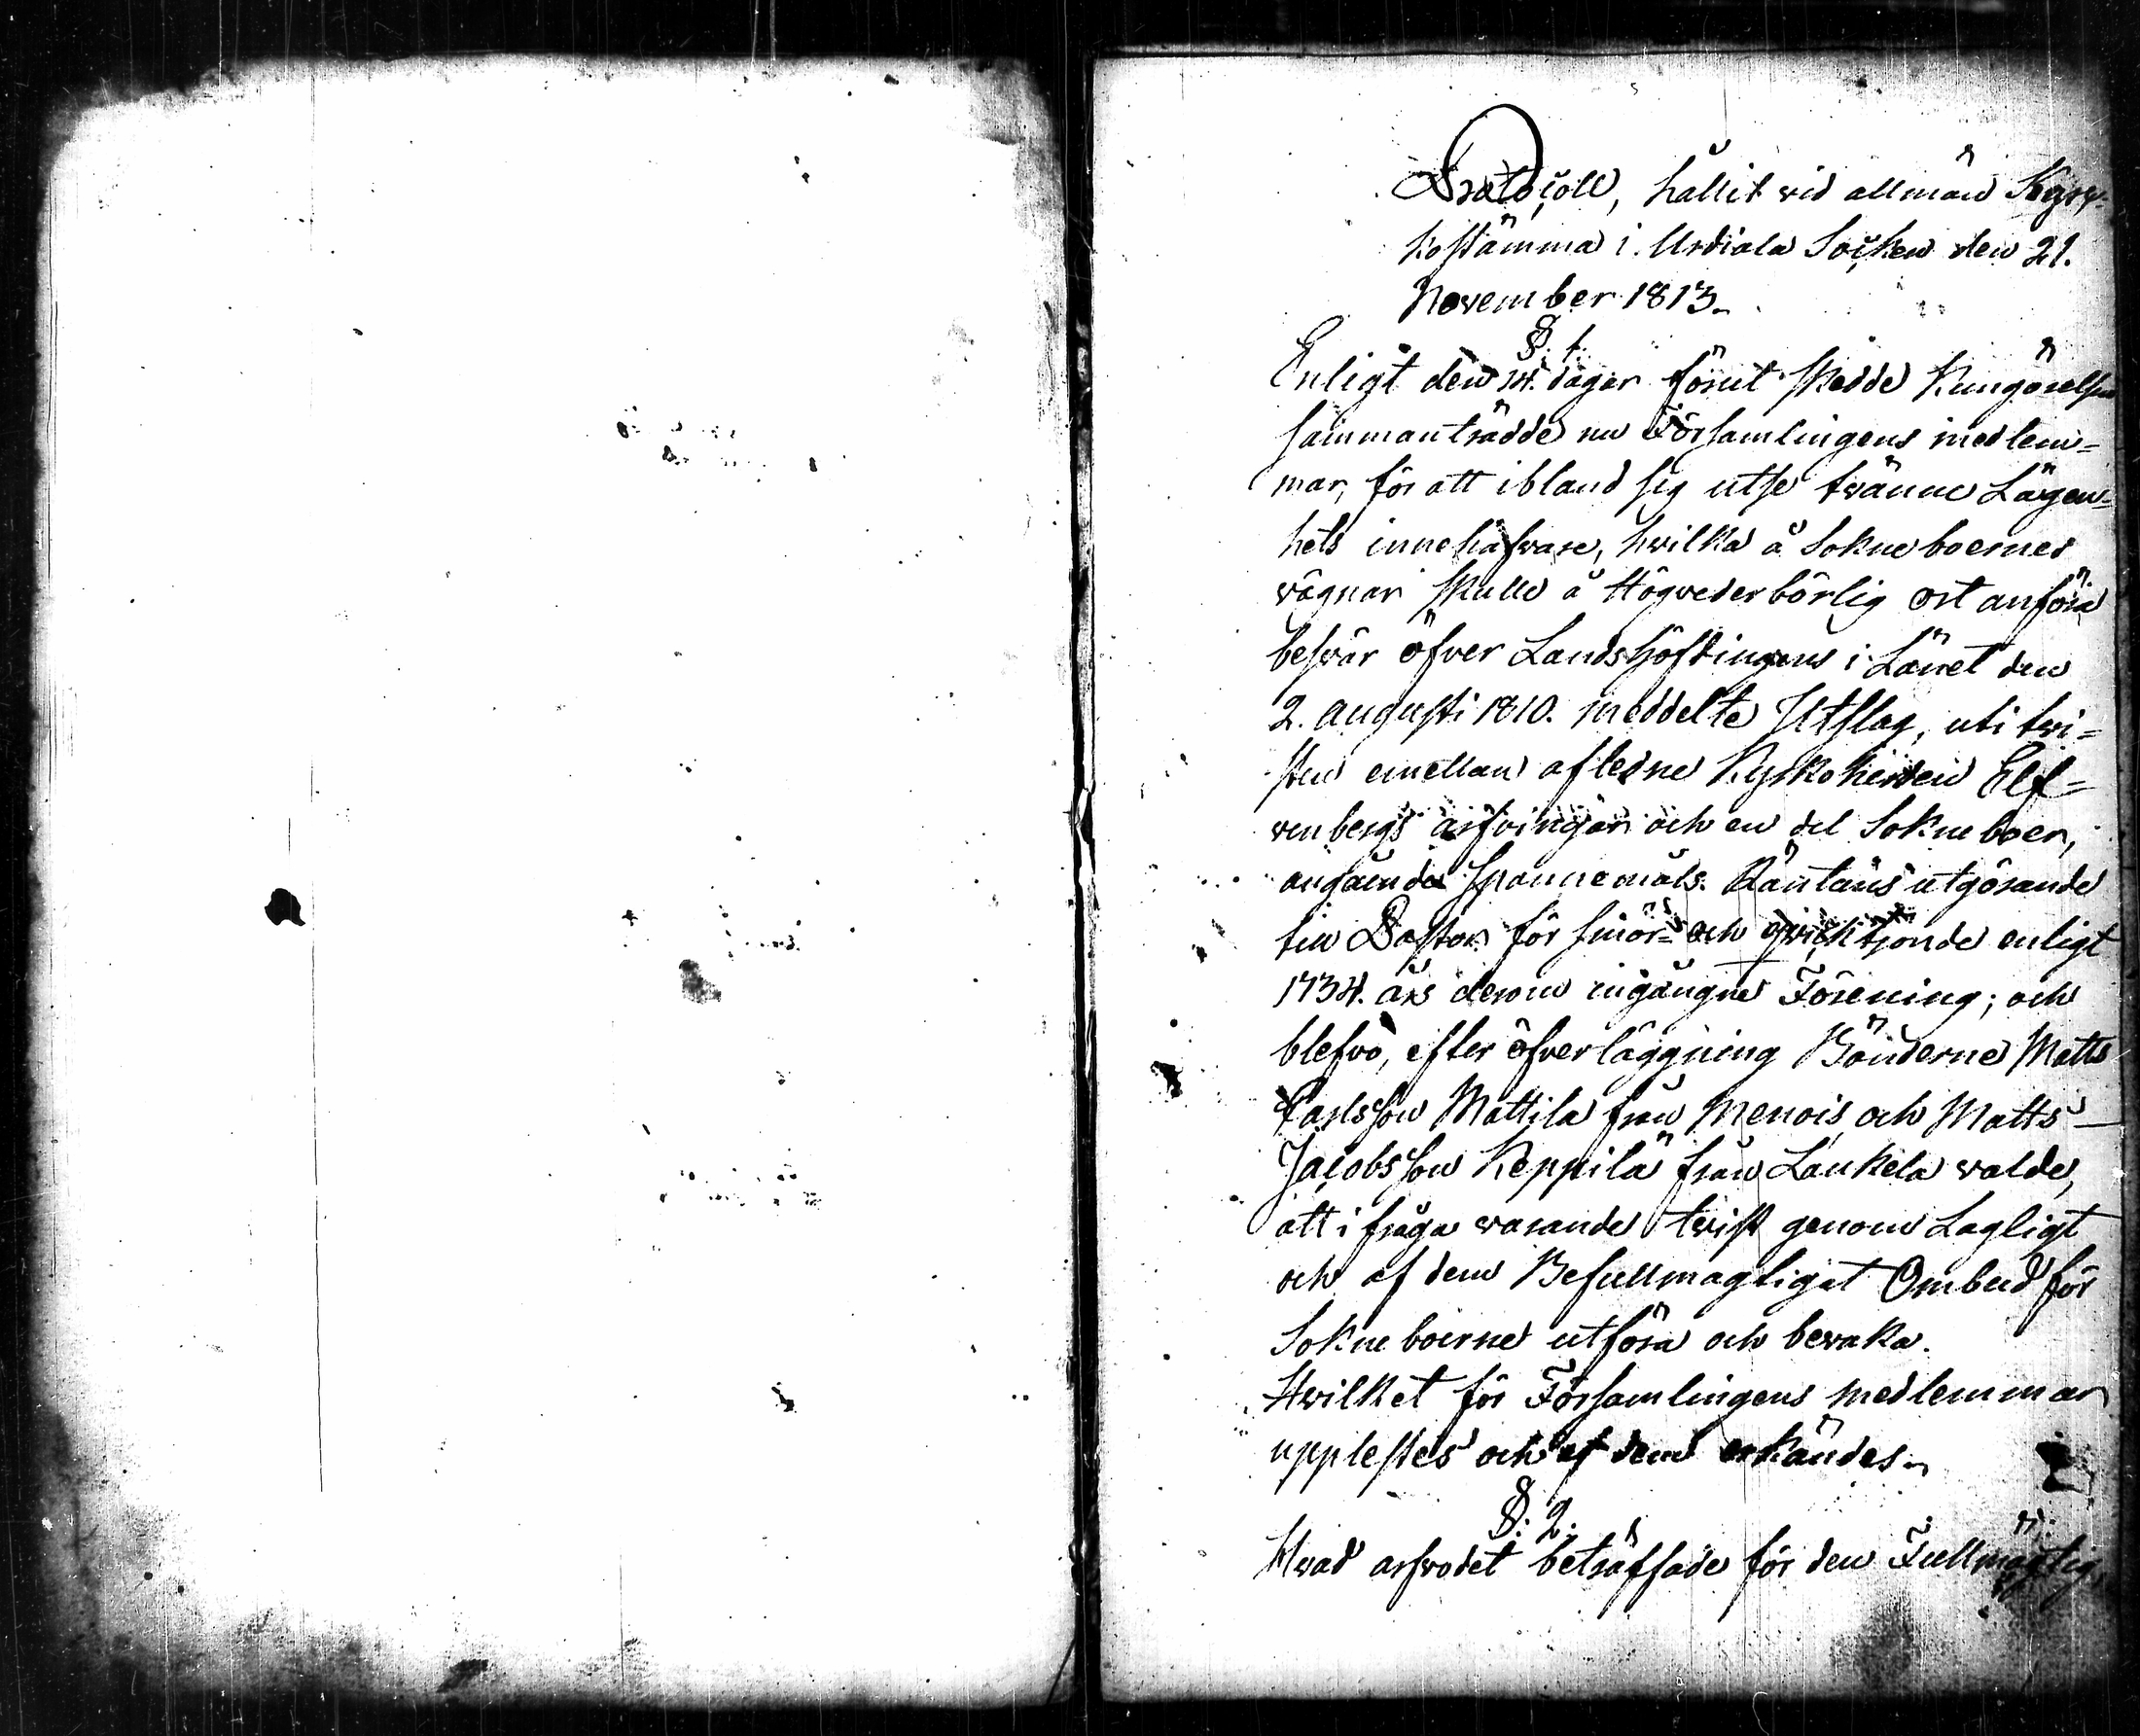 Protocoll, hållit wid allmän Kyr-
kostämma i Urdiala Socken den 21.
November 1813.
§. 1.
Enligt den 14. dagar förut skedde Kungörelsen
sammanträdde nu Församlingens medlem-
mar, för att ibland sig utse twänne Lägen-
hets innehafware, hwilka å Sokneboernes
vägnar skulle å Högvederbörlig ort anföra
besvär öfver Landshöfdingens i Länet den
2. augusti 1810. meddelte Utslag, uti twi-
sten emellan afledne Kyrkoherden Elf-
venbergs arfvingar och en del Sokneboer,
angående Spannemåls Räntans utgörande
till Pastor för smör- och qwicktjonde enligt
1734. års derom ingångne Förening; och
blefvo, efter öfverläggning Bönderne Matts
Carlsson Mattila från Menois och Matts
Jacobsson Keppilä från Laukela walde,
att i fråga warande twist genom Lagligt
och af dem Befullmägtigat Ombud för
Sokneboerne utföra och bevaka.
Hwilket för Församlingens medlemmar
upplestes och af dem erkändes.
§. 2.
Hvad arfvodet beträffade för den Fullmägtig